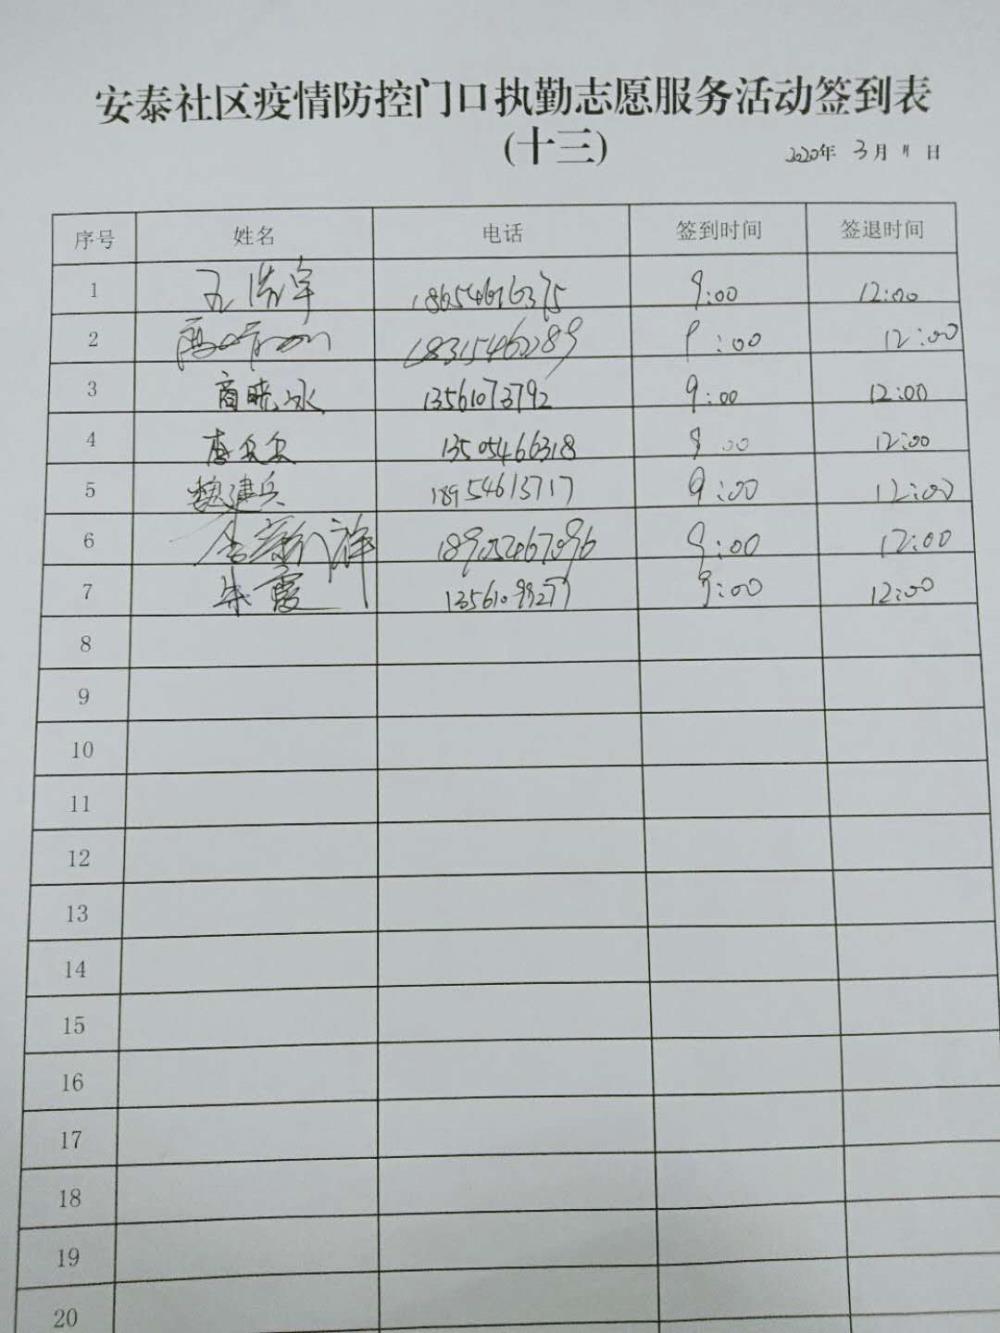 安泰社区疫情防控门口执勤志愿服务活动签到表
(十三)
2020年 3月 11日
序号 姓名 电话 签到时间 签退时间
1 18654616375 9:00 12:00
2 18315462289 9:00 12:00
3 商晓冰 13561073792 9:00 12:00
4 13505466318 9:00 12:00
5 魏建兵 18954613717 9:00 12:00
6 9:00 12:00
7 朱霞 13561099277 9:00 12:00
8
9
10
11
12
13
14
15
16
17
18
19
20